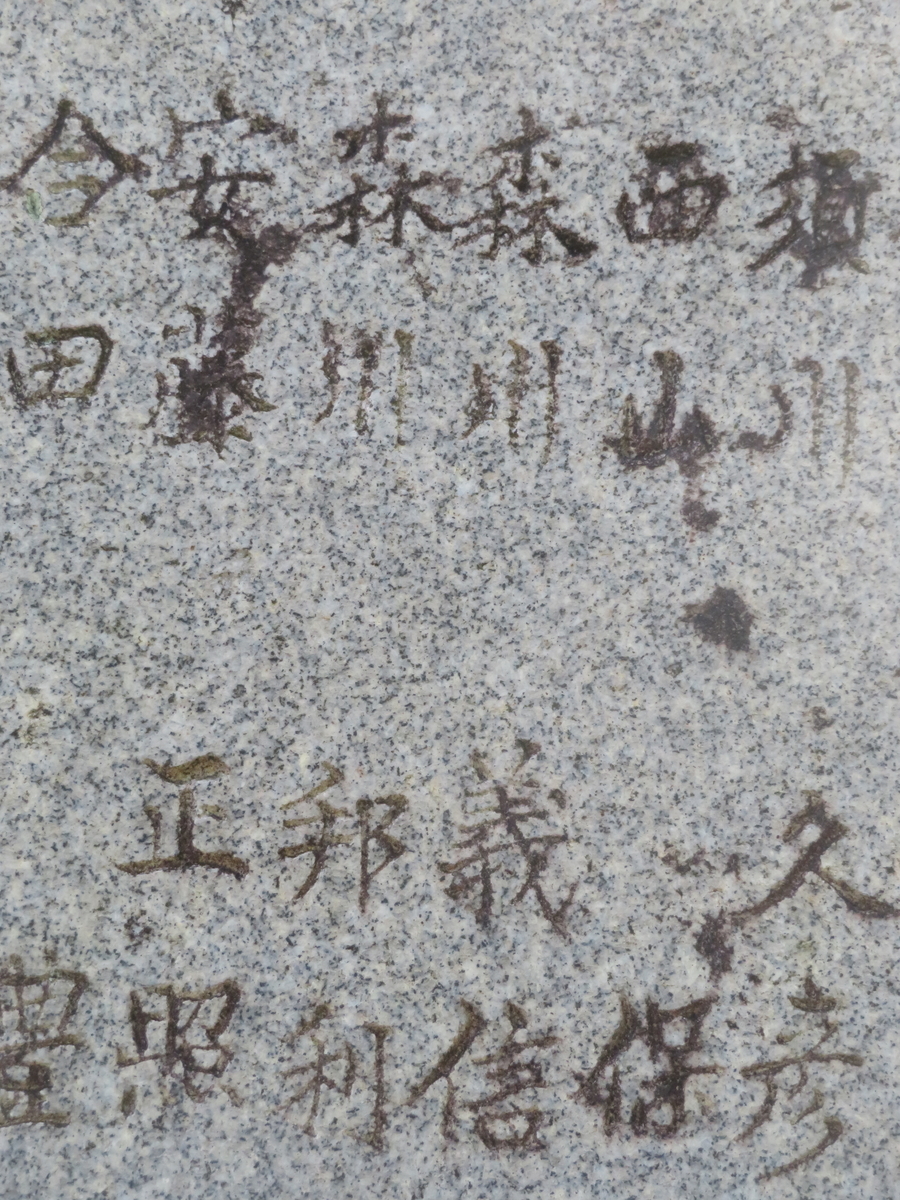 須川 久彦
西山 保
森川 義信
森川 邦利
安藤 正照
今田 豊